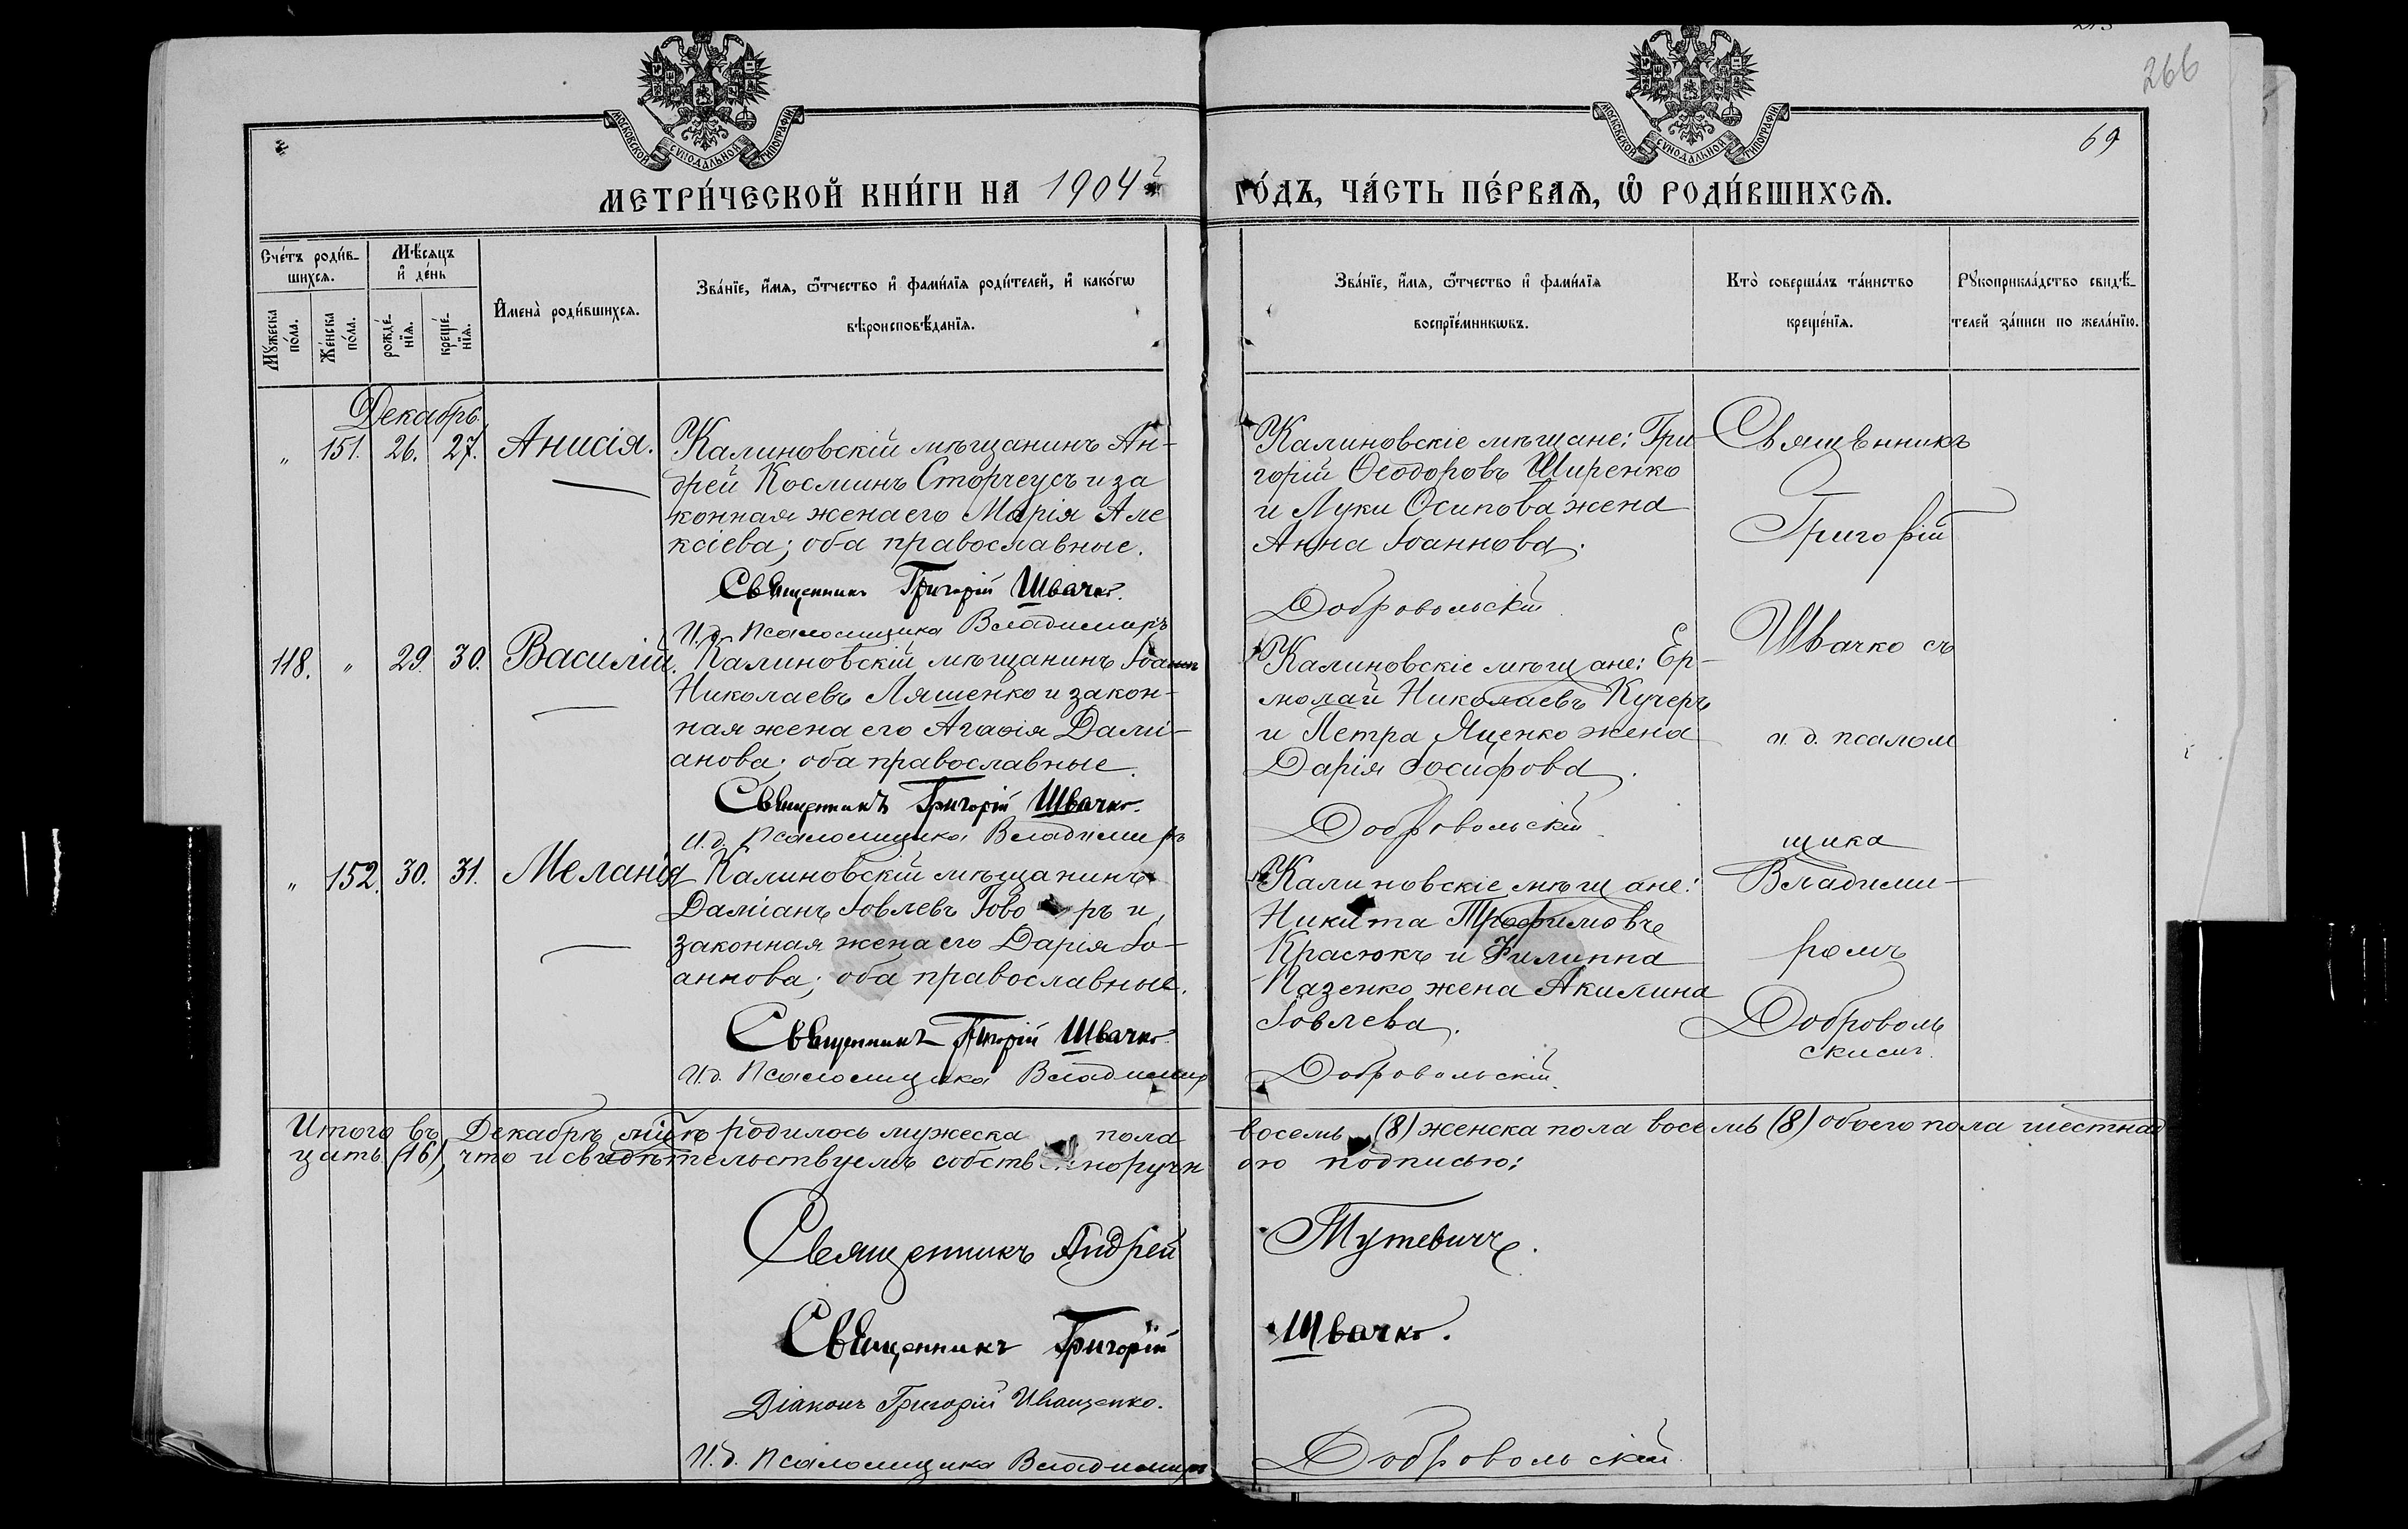 266
69
МОСКОВСКОЙ СѴНОДАЛЬНОЙ ТИПОГРАФІИ
МОСКОВСКОЙ СѴНОДАЛЬНОЙ ТИПОГРАФІИ
МЕТРИ́ЧЕСКОЙ КНИ́ГИ НА 1904й ГО́ДЪ, ЧА́СТЬ ПЕ́РВАѦ, Ѡ РОДИ́ВШИХСѦ.
Сче́тъ роди́в-
шихсѧ.
Мꙋ́жеска по́ла.
Же́нска по́ла.
Мѣ́сѧцъ
и҆ де́нь
рожде́-
нїѧ.
креще́-
нїѧ.
И҆мена̀ роди́вшихсѧ.
Зва́нїе, и҆́мѧ, ѻ҆́тчество и҆ фами́лїѧ роди́телей, и҆ како́гѡ
вѣроисповѣ́данїѧ.
Зва́нїе, и҆́мѧ, ѻ҆́тчество и҆ фами́лїѧ
воспрїе́мникѡвъ.
Кто̀ соверша́лъ та́инство
креще́нїѧ.
Рꙋкоприкла́дство свидѣ́-
телей за́писи по жела́нїю.
Декабрь.
„ 151. 26. 27. Анисія.
Калиновскій мѣщанинъ Ан-
дрей Косминъ Сторчеусъ и за
конная жена его Марія Але
ксіева; оба православные.
Священникъ Григорій Швачко.
И.д. Псаломщика Владиміръ
Калиновскіе мѣщане: Гри-
горій Ѳеодоровъ Ширенко
и Луки Осипова жена
Анна Іоаннова.
Добровольскій
118. „ 29. 30. Василій.
Калиновскій мѣщанинъ Іоаннъ
Николаевъ Ляшенко и закон-
ная жена его Агаѳія Дамі-
анова; оба православные.
Священникъ Григорій Швачко.
И.д. Псаломщика Владиміръ
Калиновскіе мѣщане: Ер-
молай Николаевъ Кучеръ
и Петра Яценко жена
Дарія Іосифова.
Добровольскій
„ 152. 30. 31. Меланія
Калиновскій мѣщанинъ
Даміанъ Іовлевъ Гово ръ и
законная жена его Дарія Іо-
аннова; оба православные.
Священникъ Григорій Швачко
И.д. Псаломщика Владиміръ
Калиновскіе мѣщане:
Никита Трофимовъ
Красюкъ и Филиппа
Пазенко жена Акилина
Іовлева.
Добровольскій.
Священникъ
Григорій
Швачко съ
и. д. псалом
щика
Владими-
ромъ
Доброволь
скимъ.
Итого въ Декабрѣ мцѣ родилось мужеска пола восемь (8) женска пола восемь (8) обоего пола шестнад
цать (16), что и свидѣтельствуемъ собственноручн ою подписью:
Священникъ Андрей Тутевичъ.
Священникъ Григорій Швачко.
Діаконъ Григорій Иващенко.
И.д. Псаломщика Владиміръ Добровольскій